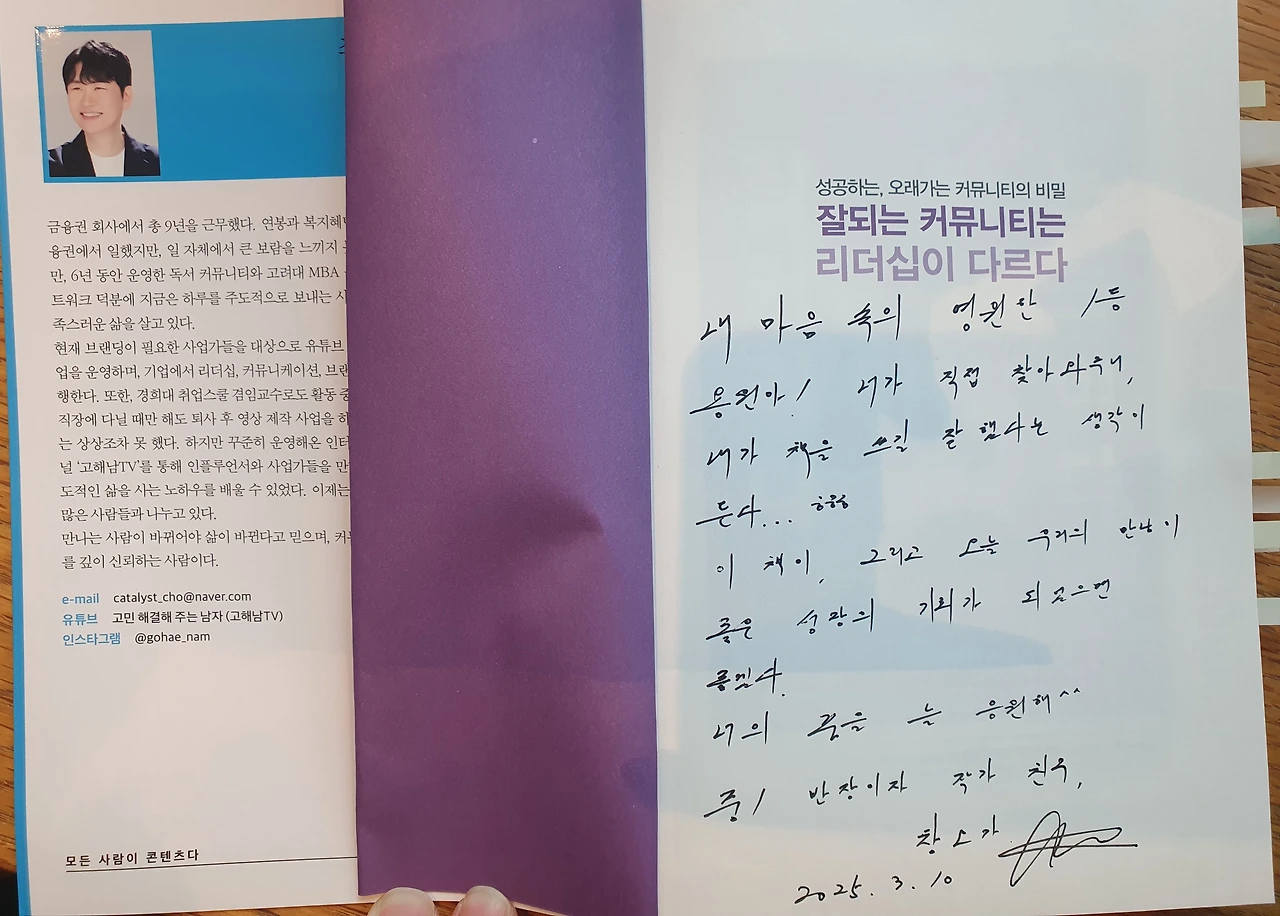 금융권 회사에서 총 9년을 근무했다. 연봉과 복지혜
융권에서 일했지만, 일 자체에서 큰 보람을 느끼지
만, 6년 동안 운영한 독서 커뮤니티와 고려대 MBA
트워크 덕분에 지금은 하루를 주도적으로 보내는
족스러운 삶을 살고 있다.
현재 브랜딩이 필요한 사업가들을 대상으로 유튜브
업을 운영하며, 기업에서 리더십, 커뮤니케이션, 브랜
행한다. 또한, 경희대 취업스쿨 겸임교수로도 활동
직장에 다닐 때만 해도 퇴사 후 영상 제작 사업을 하
는 상상조차 못 했다. 하지만 꾸준히 운영해온 인터
널 ‘고해남TV’를 통해 인플루언서와 사업가들을 만
도적인 삶을 사는 노하우를 배울 수 있었다. 이제는
많은 사람들과 나누고 있다.
만나는 사람이 바뀌어야 삶이 바뀐다고 믿으며, 커뮤
를 깊이 신뢰하는 사람이다.
e-mail catalyst_cho@naver.com
유튜브 고민 해결해 주는 남자 (고해남TV)
인스타그램 @gohae_nam
모든 사람이 콘텐츠다
성공하는, 오래가는 커뮤니티의 비밀
잘되는 커뮤니티는
리더십이 다르다
내 마음 속의 영원한 1등
용원아! 너가 직접 찾아와주니,
내가 책을 쓰길 잘 했다는 생각이
든다...
이 책이, 그리고 오늘 우리의 만남이
좋은 성장의 기회가 되었으면
좋겠다.
너의 꿈을 늘 응원해^^
중1 반장이자 작가 친구,
2025. 3. 10